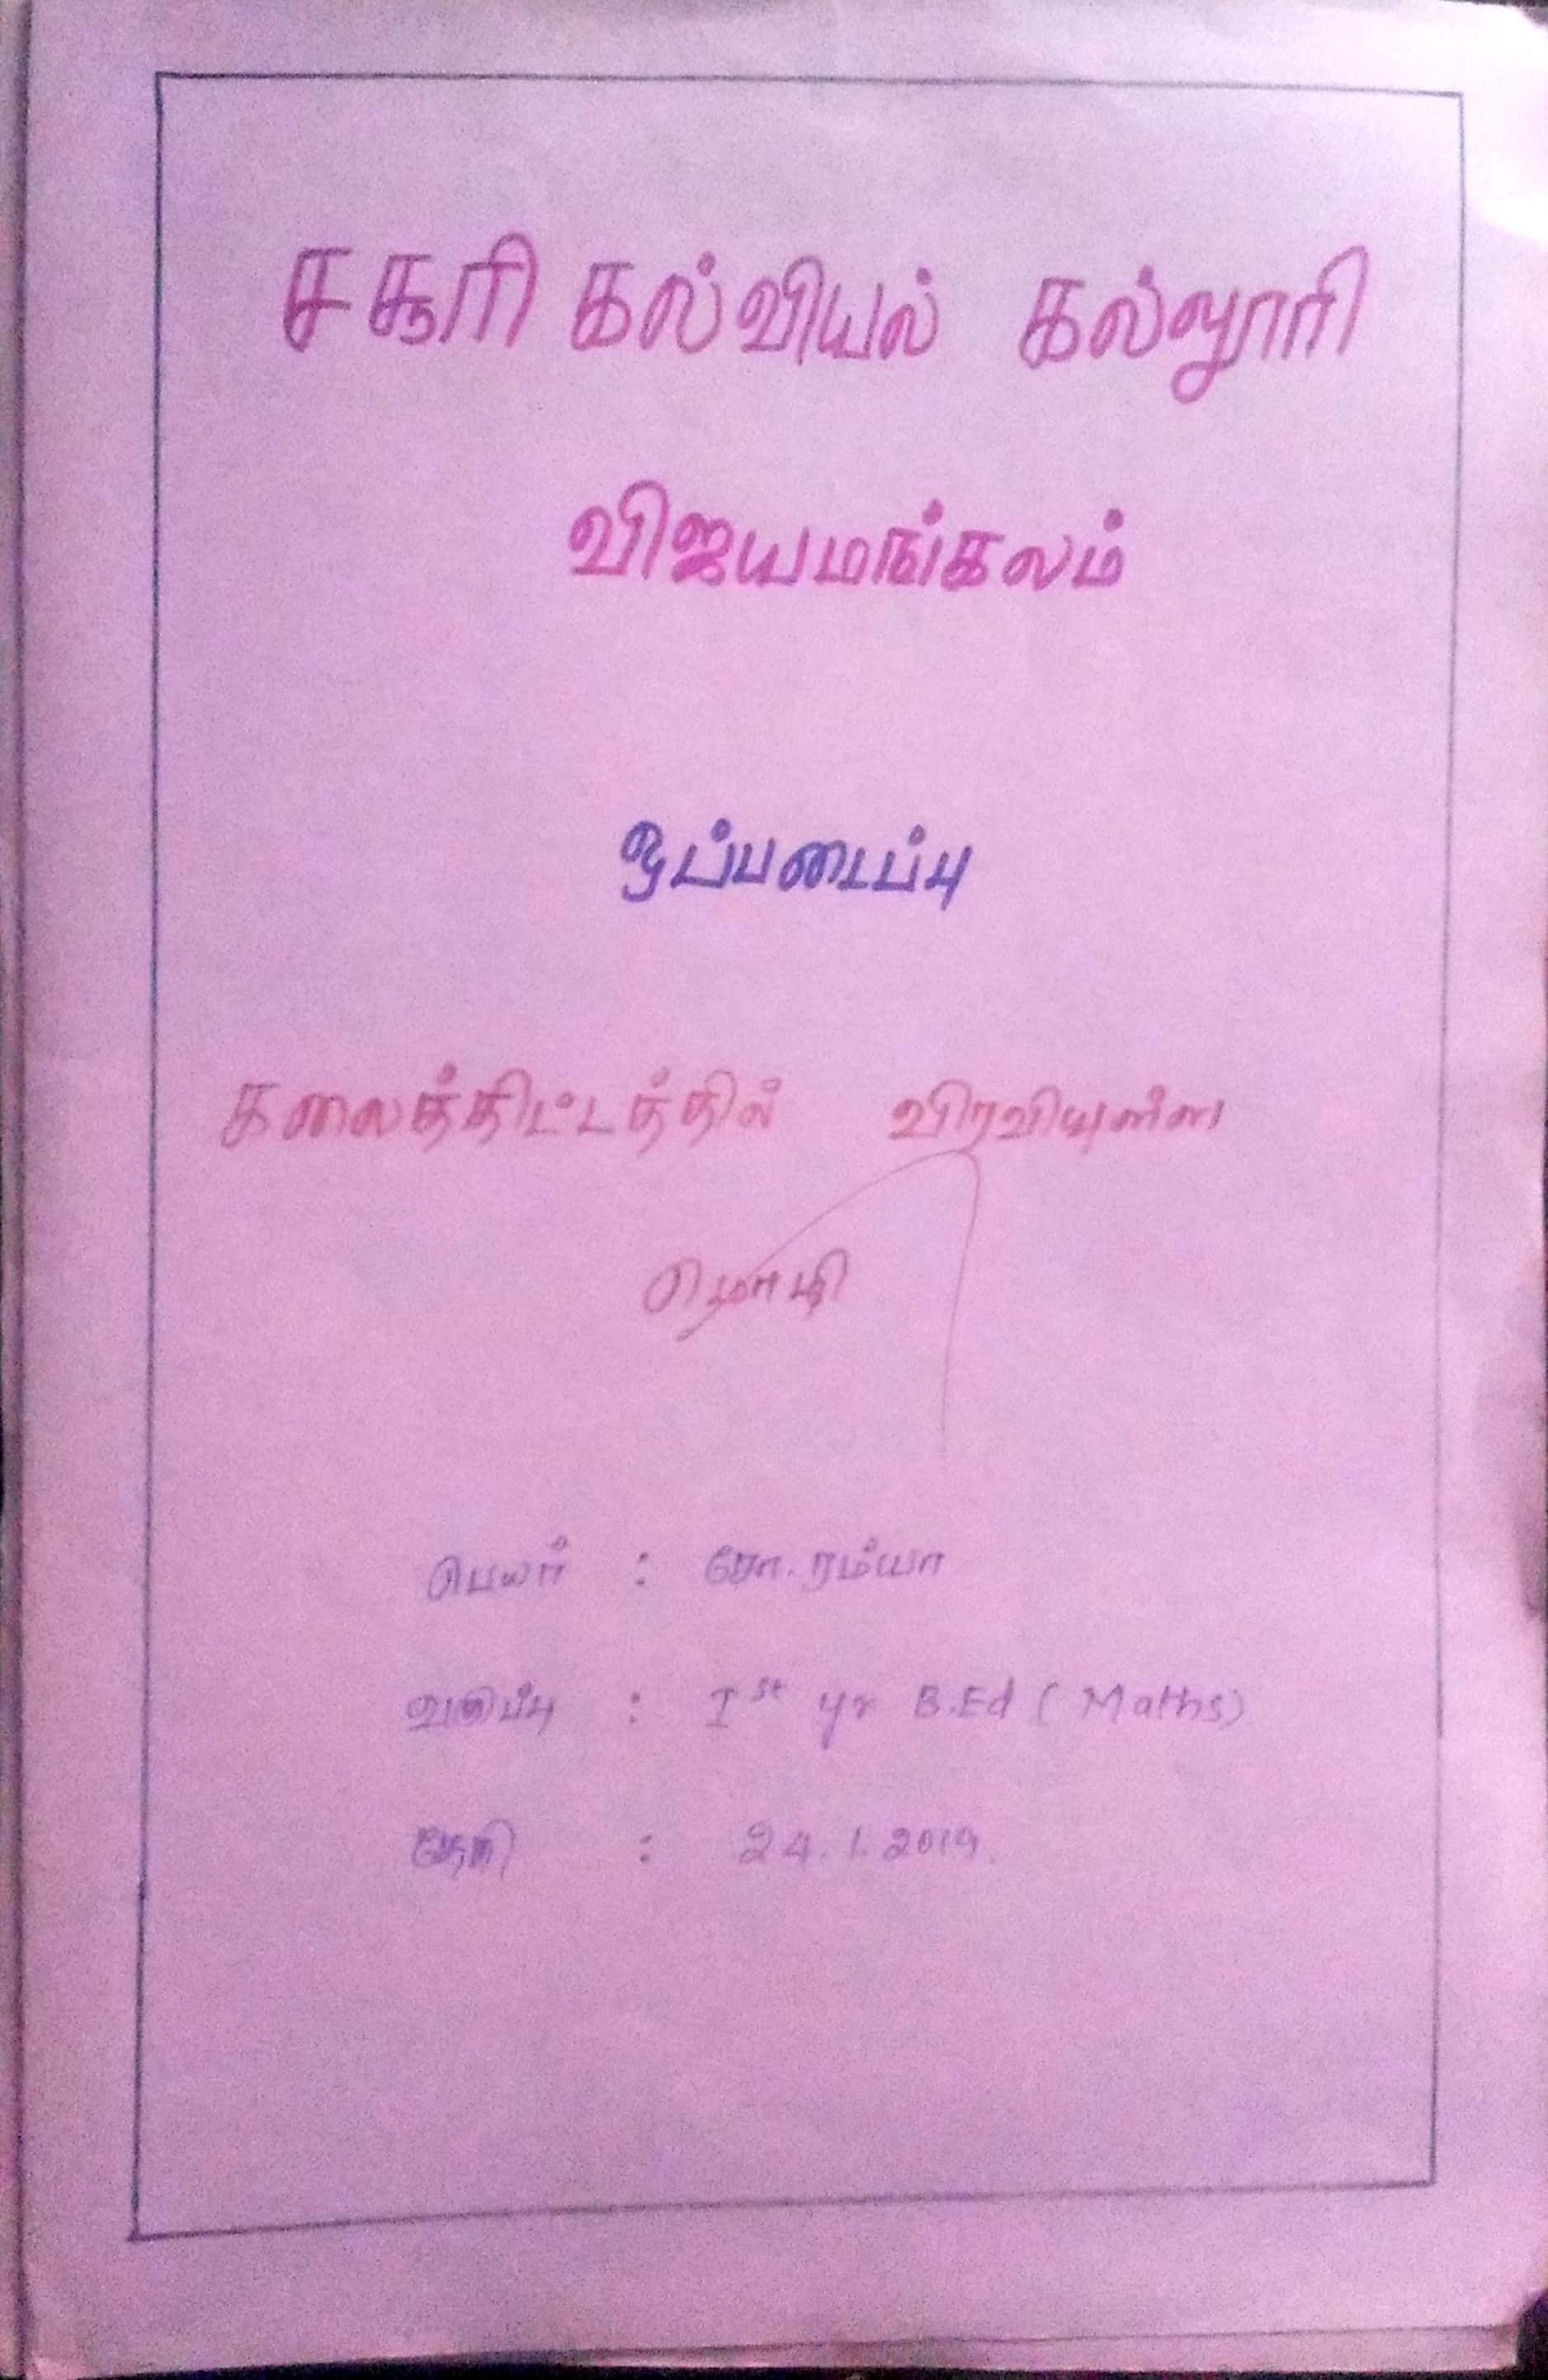 சசூரி கல்வியல் கல்லூரி
விஜயமங்கலம்
ஒப்படைப்பு
கலைத்திட்டத்தில் விரவியுள்ள
மொழி
பெயர் : சோ. ரம்யா
வகுப்பு : Ist yr B.Ed (Maths)
தேதி : 24.1.2019.